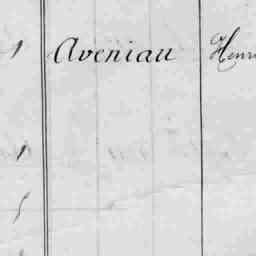 1 Aveniau Henri
1
5